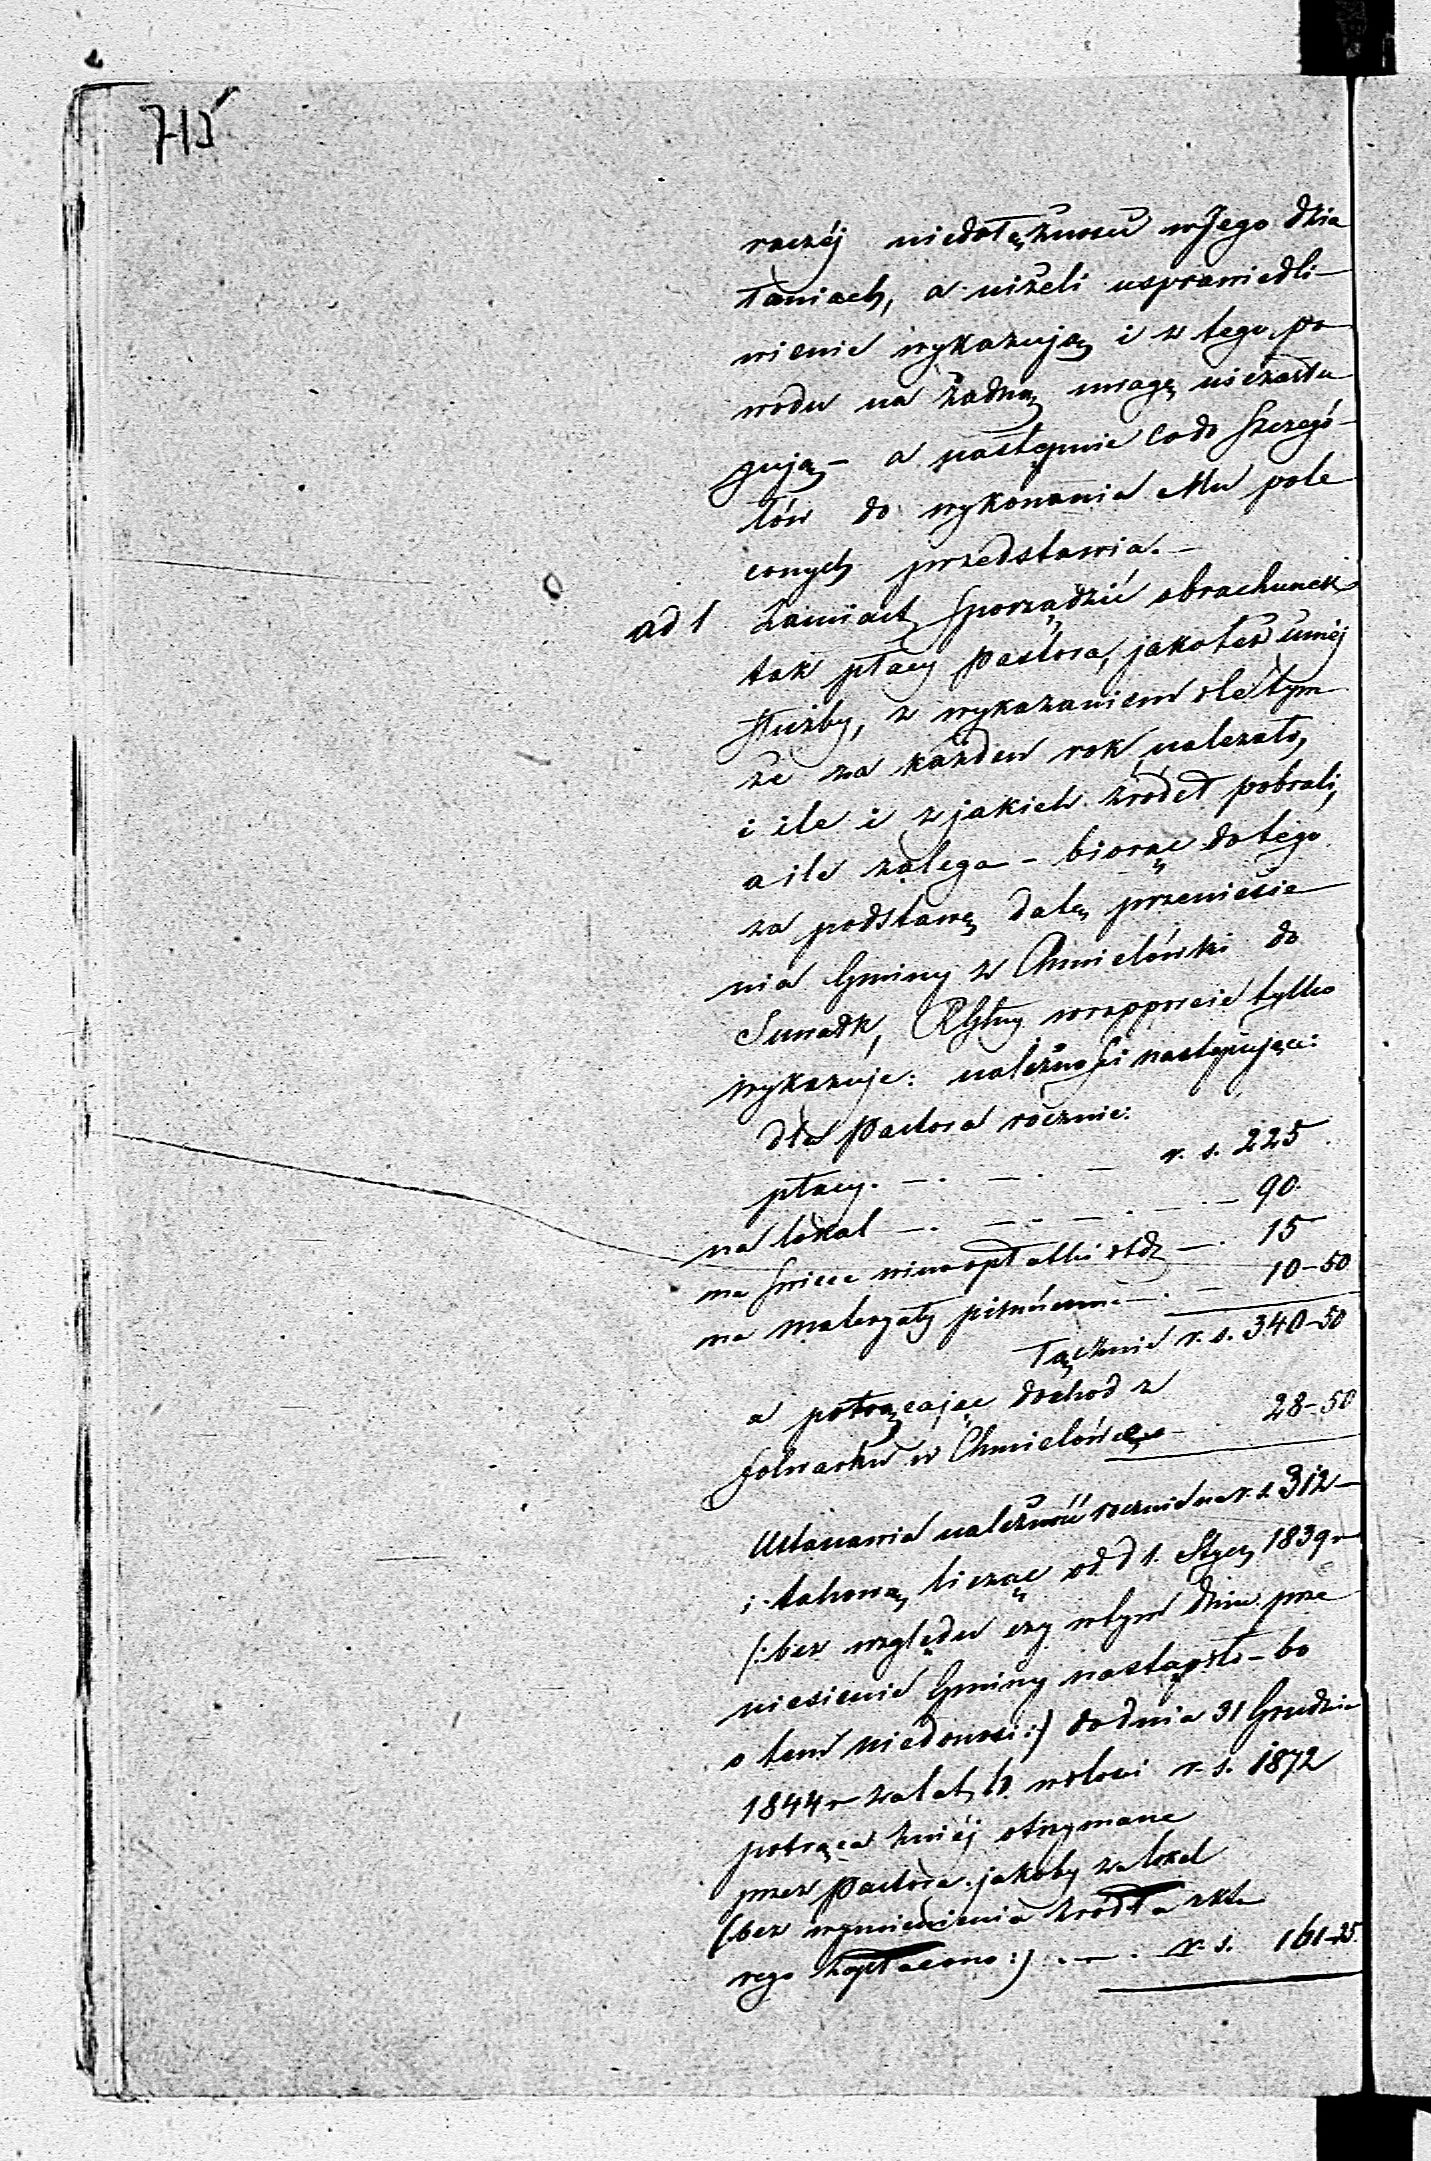 715
raczéj niedołężność w Jego dzia
łaniach, a niżeli usprawiedli-
wienie wykazują i z tego po
wodu na żadną uwagę niezasłu
gują - a następnie co do szczegó-
łów do wykonania Mu pole
conych przedstawia. -
ad 1 Zamiast sporządzić obrachunek
tak płacy Pastora, jakoteż innéj
służby, z wykazaniem ile tym
że za każden rok należało,
i ile i z jakich źródeł pobrali,
a ile zalega - biorąc do tego
za podstawę datę przeniesie
nia Gminy z Chmielówki do
Suwałk, wrapporcie tylko
wykazuje: należności następujące:
dla Pastora rocznie:
płacy. - . - . - r. s. 225
na lokal - . - . - . - 90
na świece wino opłatki - . 15
na materyały piśmienne - . - 10-50
Łącznie r. s. 340-50
a potrącając dochod z
folwarku w Chmielówce 28-50
Ustanawia należność rocznie na r. s. 312-
i takową licząc od d 1. Stycz 1839 r
(: bez względu czy w tym dniu prze
niesienie Gminy nastąpiło - bo
o tem niedonosi :) do dnia 31 Grudnia
1844 r za lat 6. w ilości r. s. 1872
potrąca zniéj otrzymane
przez Pastora jakoby za lokal
(: bez wymienienia źródła z któ
rego zapłacono :) . - . r. s. 161-25